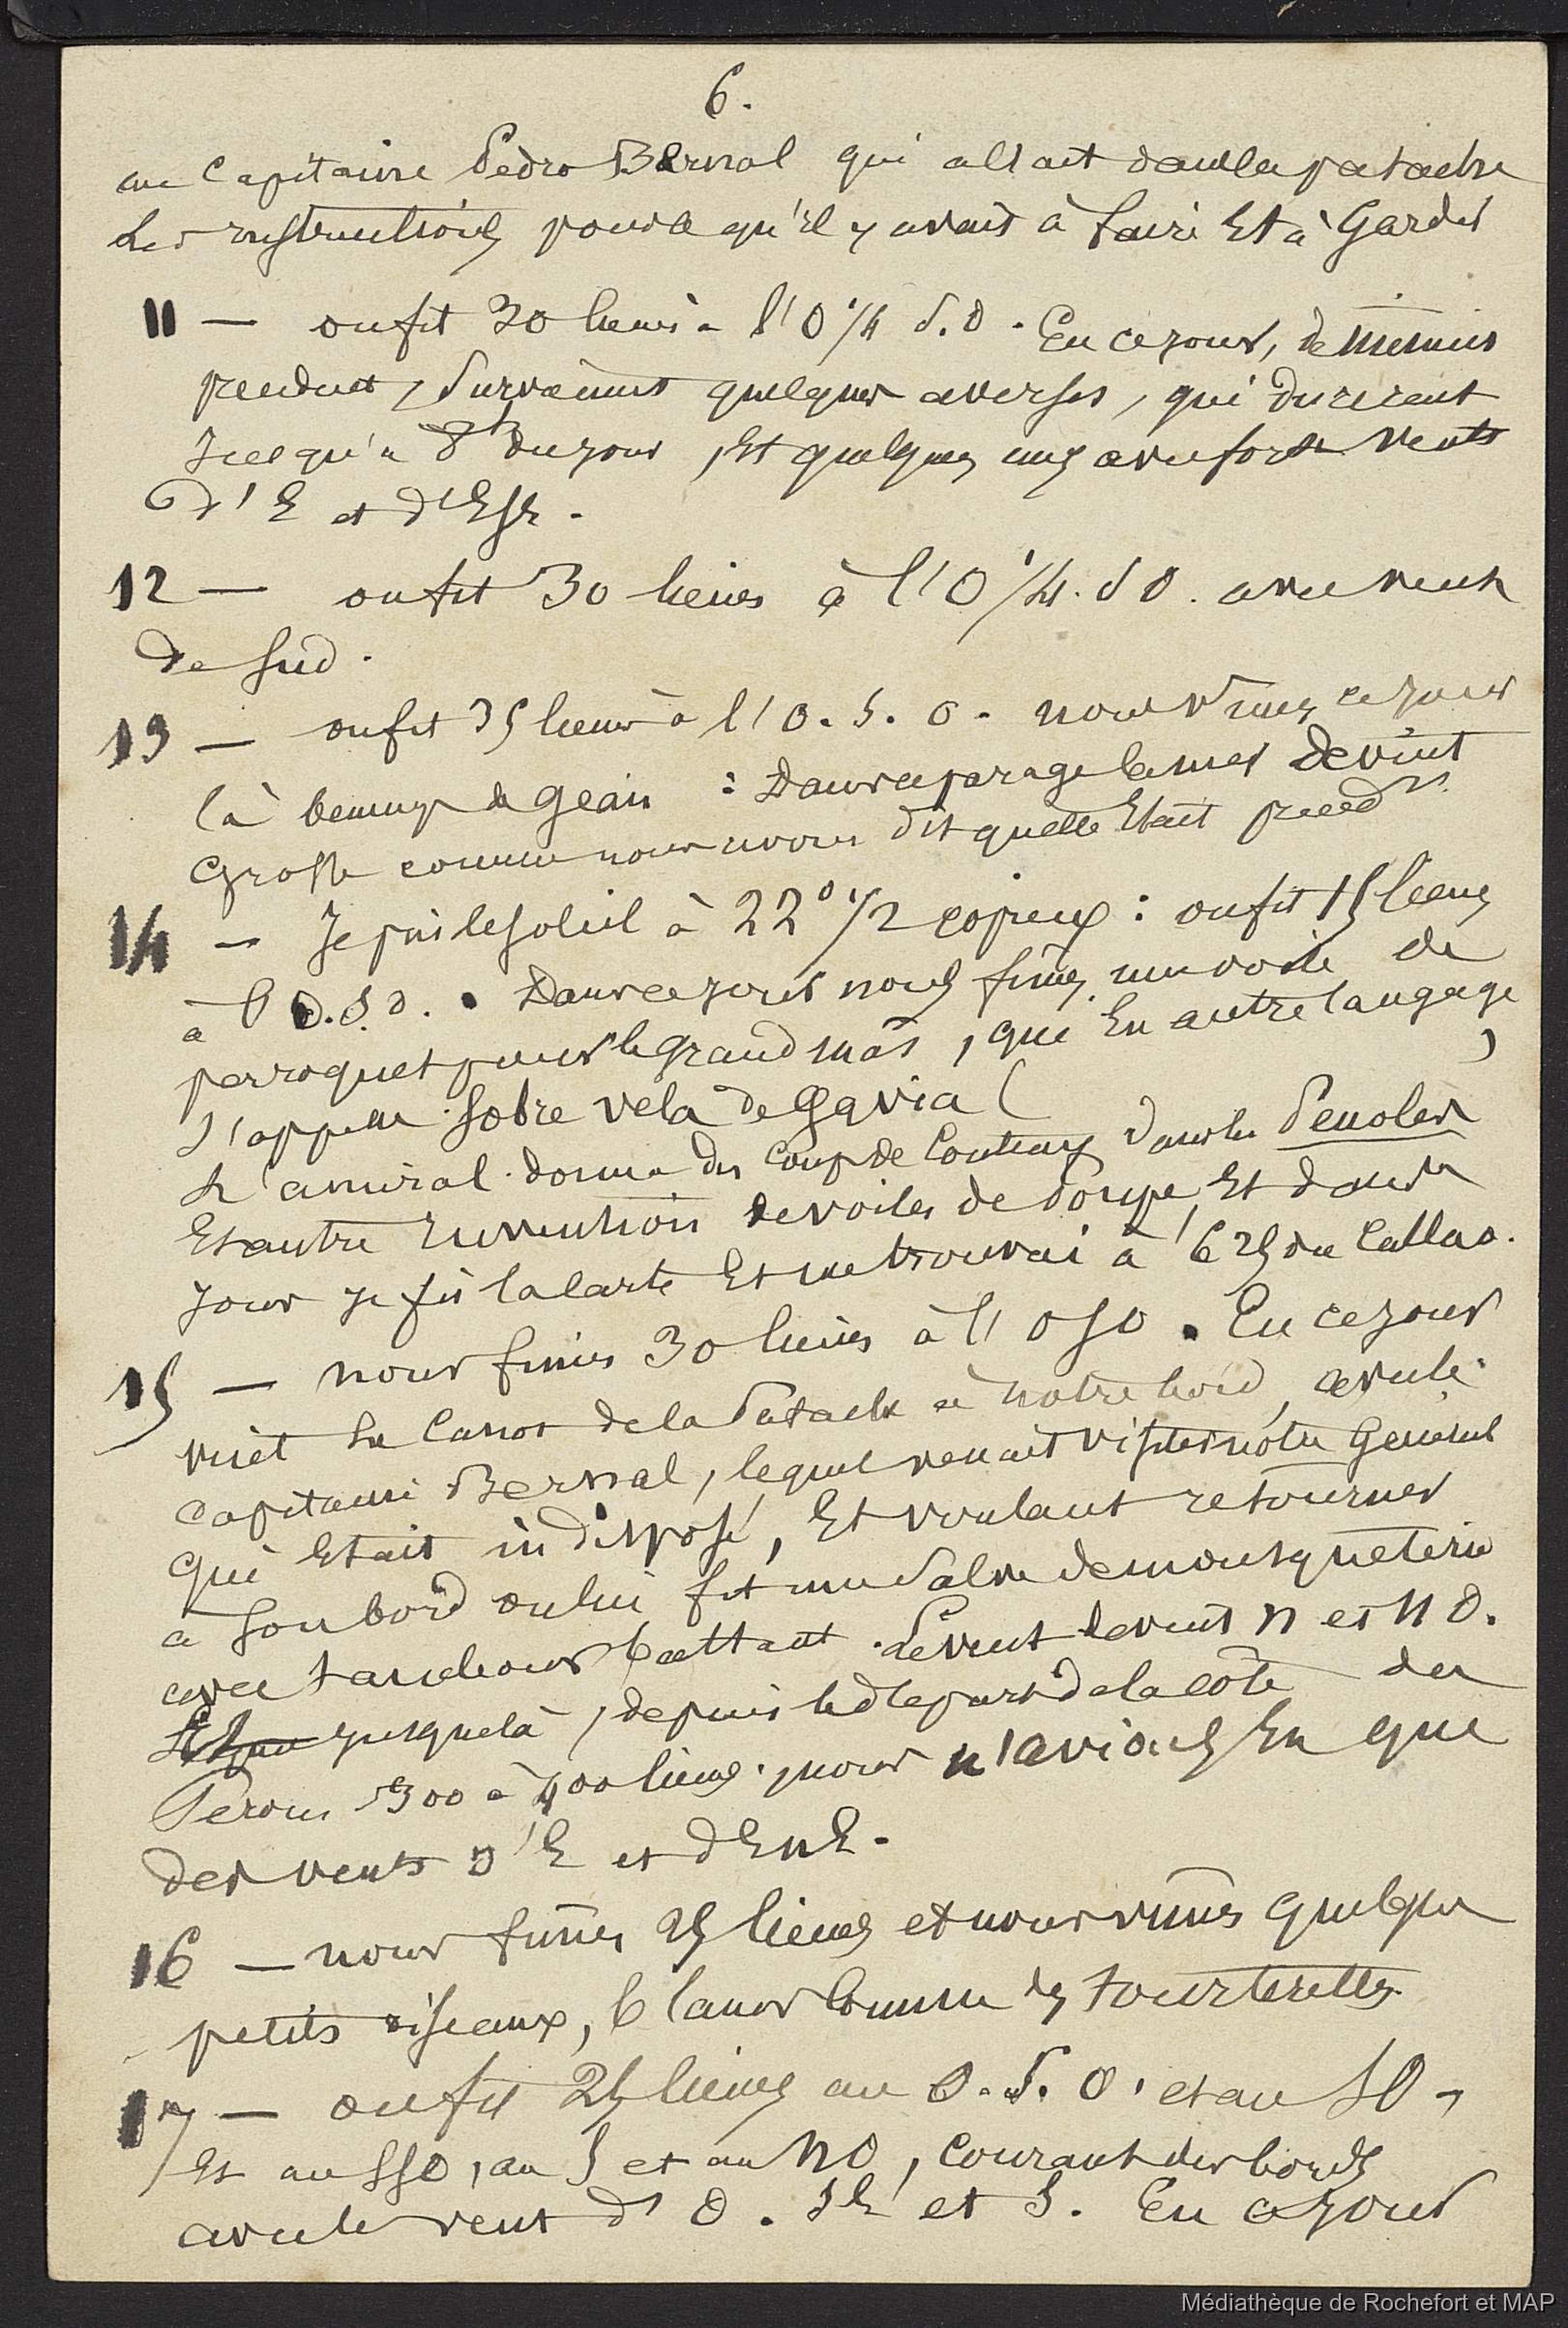 6.
au Capitaine Pedro Bernal qui allait dans la patache
les instructions pour ce qu'il y avait à faire Et à Garder
11 — on fit 30 lieues à l'O 1/4 S.O. En ce jour, de
pendant, survinrent quelques averses, qui durèrent
jusqu'à 8h du jour, Et quelques unes avec forts vents
d'E et d'Ese.
12 — on fit 30 lieues à l'O 1/4. S O. avec vents
de sud.
13 — on fit 35 lieues à l'O. S. O. nous vîmes ce jour
là beaucoup de geais : Dans ce parage la mer devint
Grosse comme nous avons dit quelle Etait
14 — Je pris le soleil à 22° 1/2 copieux : on fit 15 lieues
à l'O. S. O. Dans ce jour nous fîmes une voile de
perroquet pour le grand mâts, que En autre langage
s'appelle sobre vela de Gavia ( )
L'amiral donna des coups de couteaux dans les Penoles
Et autre Invention de voiles de Poupe, Et dans ce
jour je fis la carte Et me trouvai à 625 du Callao.
15 — nous fîmes 30 lieues à l'OSO. En ce jour
vint Le Canot de la Patache à notre bord, avec le
Capitaine Bernal, lequel venait visiter notre General
qui Etait indisposé, Et voulant retourner
à son bord on lui fit une Salve de mousqueterie
avec tambour battant. Le vent devint N et NO.
jusque là, depuis le départ de la côte du
Perou 300 à 400 lieues. nous n'avions Eu que
des vents d'E et d'EnE.
16 — nous fîmes 25 lieues et nous vîmes quelques
petits oiseaux, blancs Comme des tourterelles.
17 — on fit 25 lieues au O. S. O. et au SO,
Et au SSO, au S et au NO, Courant des bords
avec le vent d'O. SE et S. En ce jour
Médiathèque de Rochefort et MAP